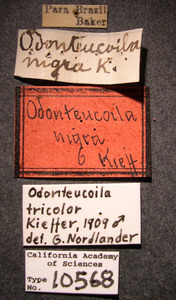 Para Brazil
Baker
Odonteucoila
nigra K.
Odonteucoila
nigra
Kieff
Odonteucoila
tricolor
Kieffer, 1909 ♂
det. G. Nordlander
California Academy
of Sciences
Type
No. 10568